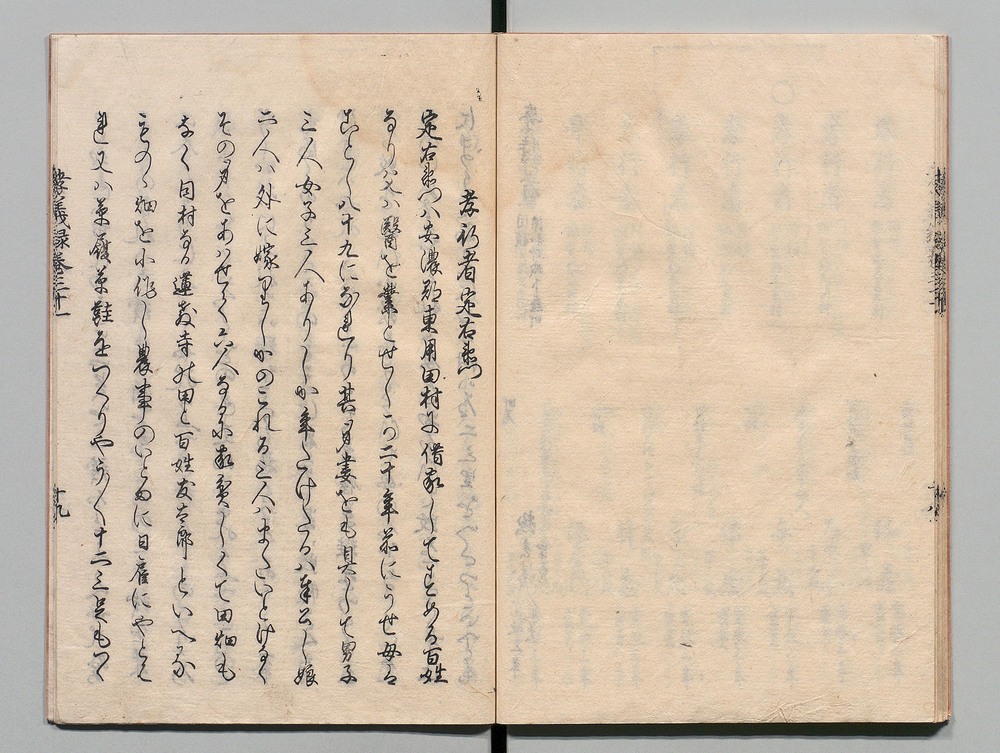 孝行者定右衛門
定右衛門ハ安濃郡東用田村に借家してすめる百姓
なり父ハ醫を業とせしか二十年前にうせ母は
ことし八十九になれり其身妻をも具して男子
三人女子三人ありしか年たけたるハ奉公し娘
二人ハ外に嫁りしかのこれる三人ハまたいとけなく
その身をあハせて六人なるに家貧しくて田畑も
なく同村なる蓮敎寺の田と百姓友太郎といへる
ものゝ畑を小作し農事のいとまに日雇にやとハ
れ又ハ草履草鞋をつくりやうやく十二三足もつく
孝義録巻三十一
十九